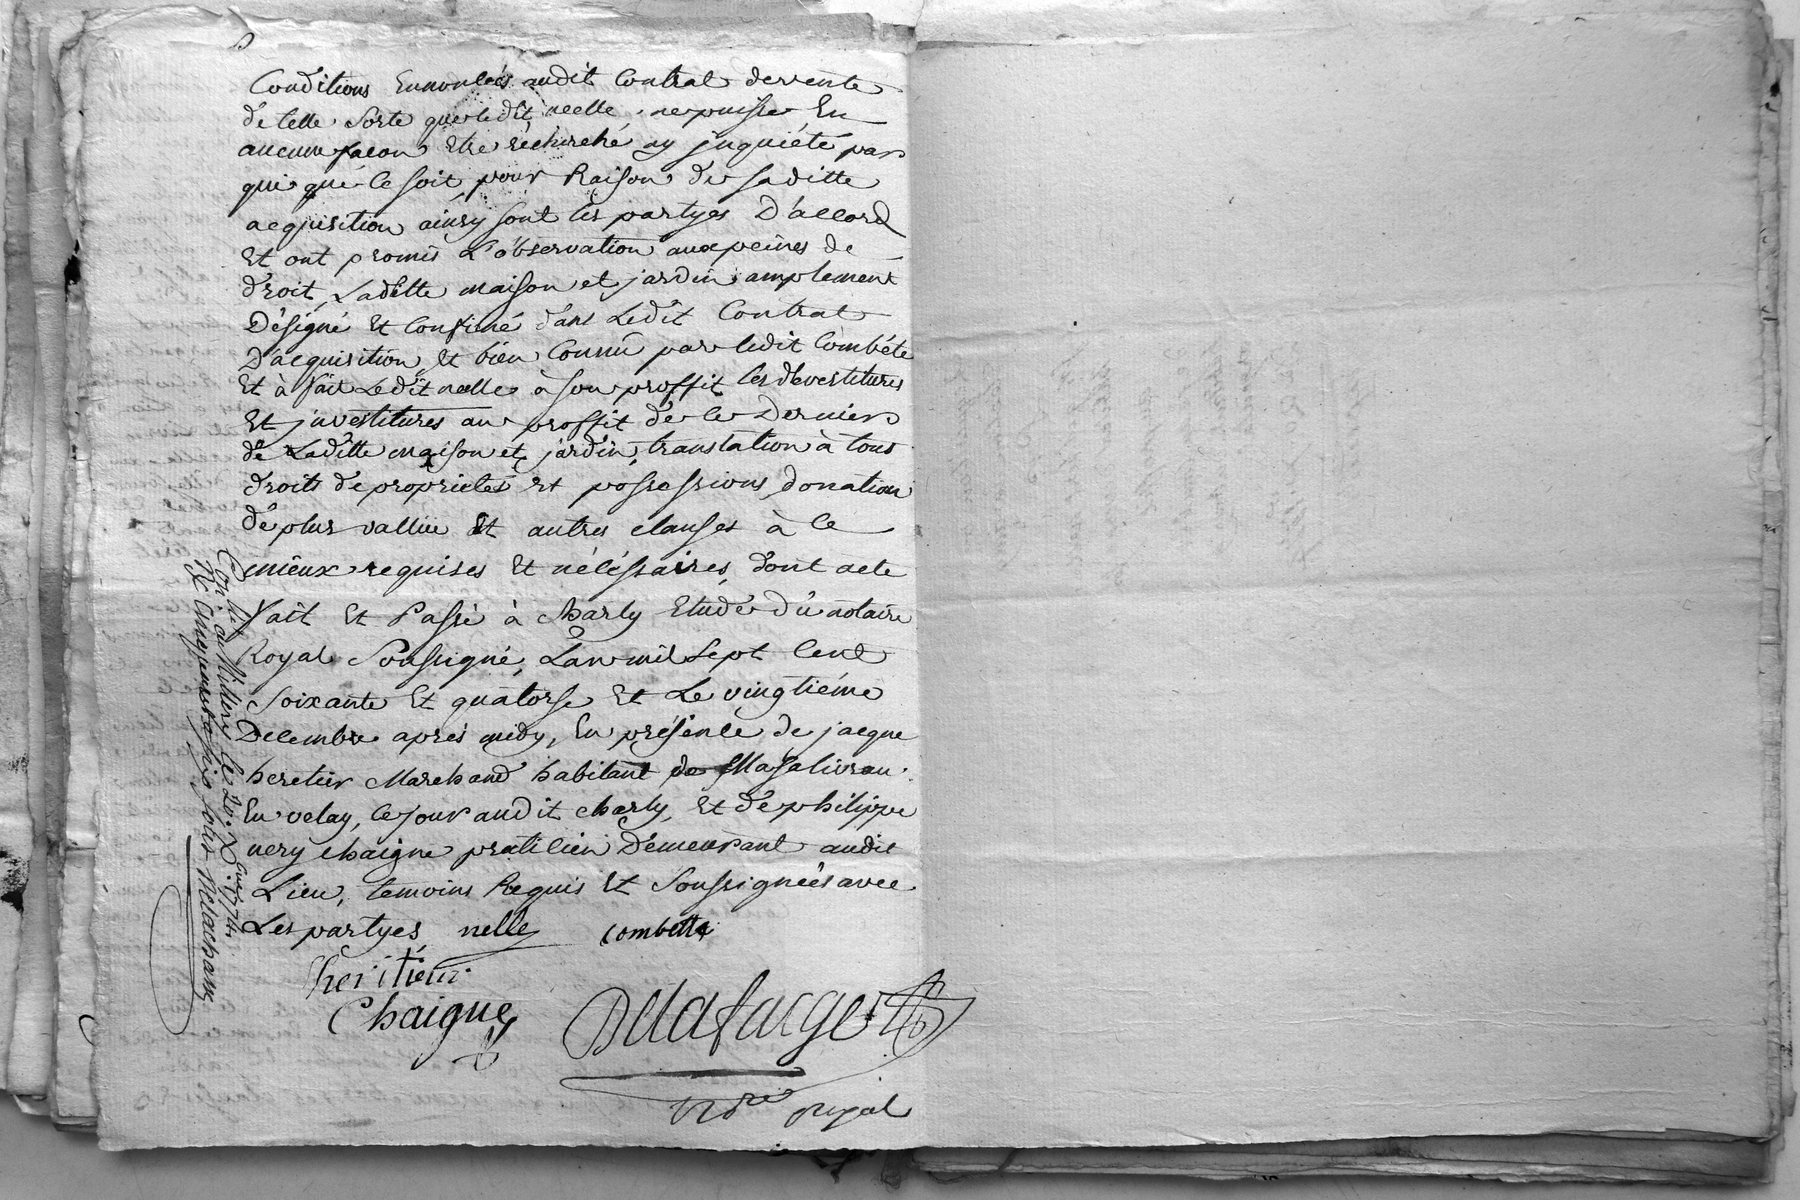 Conditions Ennoncés audit Contrat devente
de telle Sorte queledit nelle, nepuisse En
aucune facon Etre récherché ny jnquiété par
qui que ce soit pour Raison de saditte
acquisition ainsy sont les partyes D'accord
Et ont promis L'observation aux peines de
droit, Laditte maison et jardin amplement
Désigné Et Confiné dans Ledit Contrat
D'acquisition, Et bien Connu par ledit Combéte
Et à fait Ledit nelle à son proffit les devestitures
Et jnvestitures au proffit de ce Dernier
de Laditte maison et jardin, translation à tous
droits de proprietés et possessions, donation
de plus vallue Et autres clauses à ce
mieux requises Et nécéssaires, dont acte
fait Et Passé à Charly Etude du notaire
Royal Soussigné, L'an mil Sept Cent
Soixante Et quatorse Et Le vingtiéme
Decembre aprés midy, En présence de jacque
heretier Marchand habitant de
En velay, ce jour audit Charly, Et de philippe
nery chaigne praticien Demeurant audit
Lieu, temoins Requis Et Soussignées avec
Les partyes nelle combette
heritier
Chaigne
Delafarge
nore royal
Con.lé
au Millery le 20. Xbre 1774.